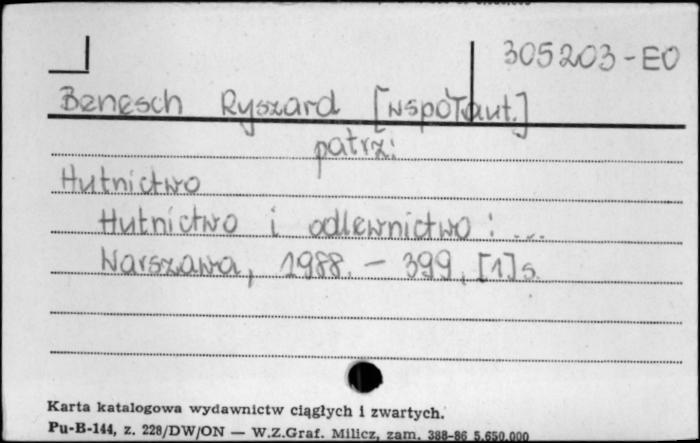 305203-EO
Benesch Ryszard [współaut.]
patrz:
Hutnictwo
Hutnictwo i odlewnictwo : ...
Warszawa, 1988. - 399, [1] s.
Karta katalogowa wydawnictw ciągłych i zwartych.
Pu-B-144, z. 228/DW/ON — W.Z.Graf. Milicz, zam. 388-86 5.650.000